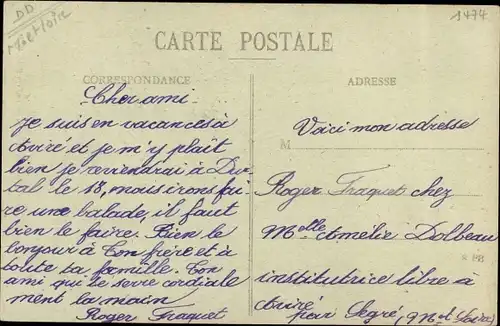 DD
1474
CARTE POSTALE
CORRESPONDANCE
ADRESSE
Cher ami
Je suis en vacances à
Aviré et je m'y plaît
bien je reviendrai à Dur
tal le 18, nous irons fai
re une balade, il faut
bien le faire. Bien le
bonjour à Ton frère et à
toute ta famille. Ton
ami qui te serre cordiale
ment la main
Roger Fraquet
Voici mon adresse
M
Roger Fraquet chez
Melle Amélie Dolbeau
institutrice libre à
Aviré
par Segré, (M. et Loire)